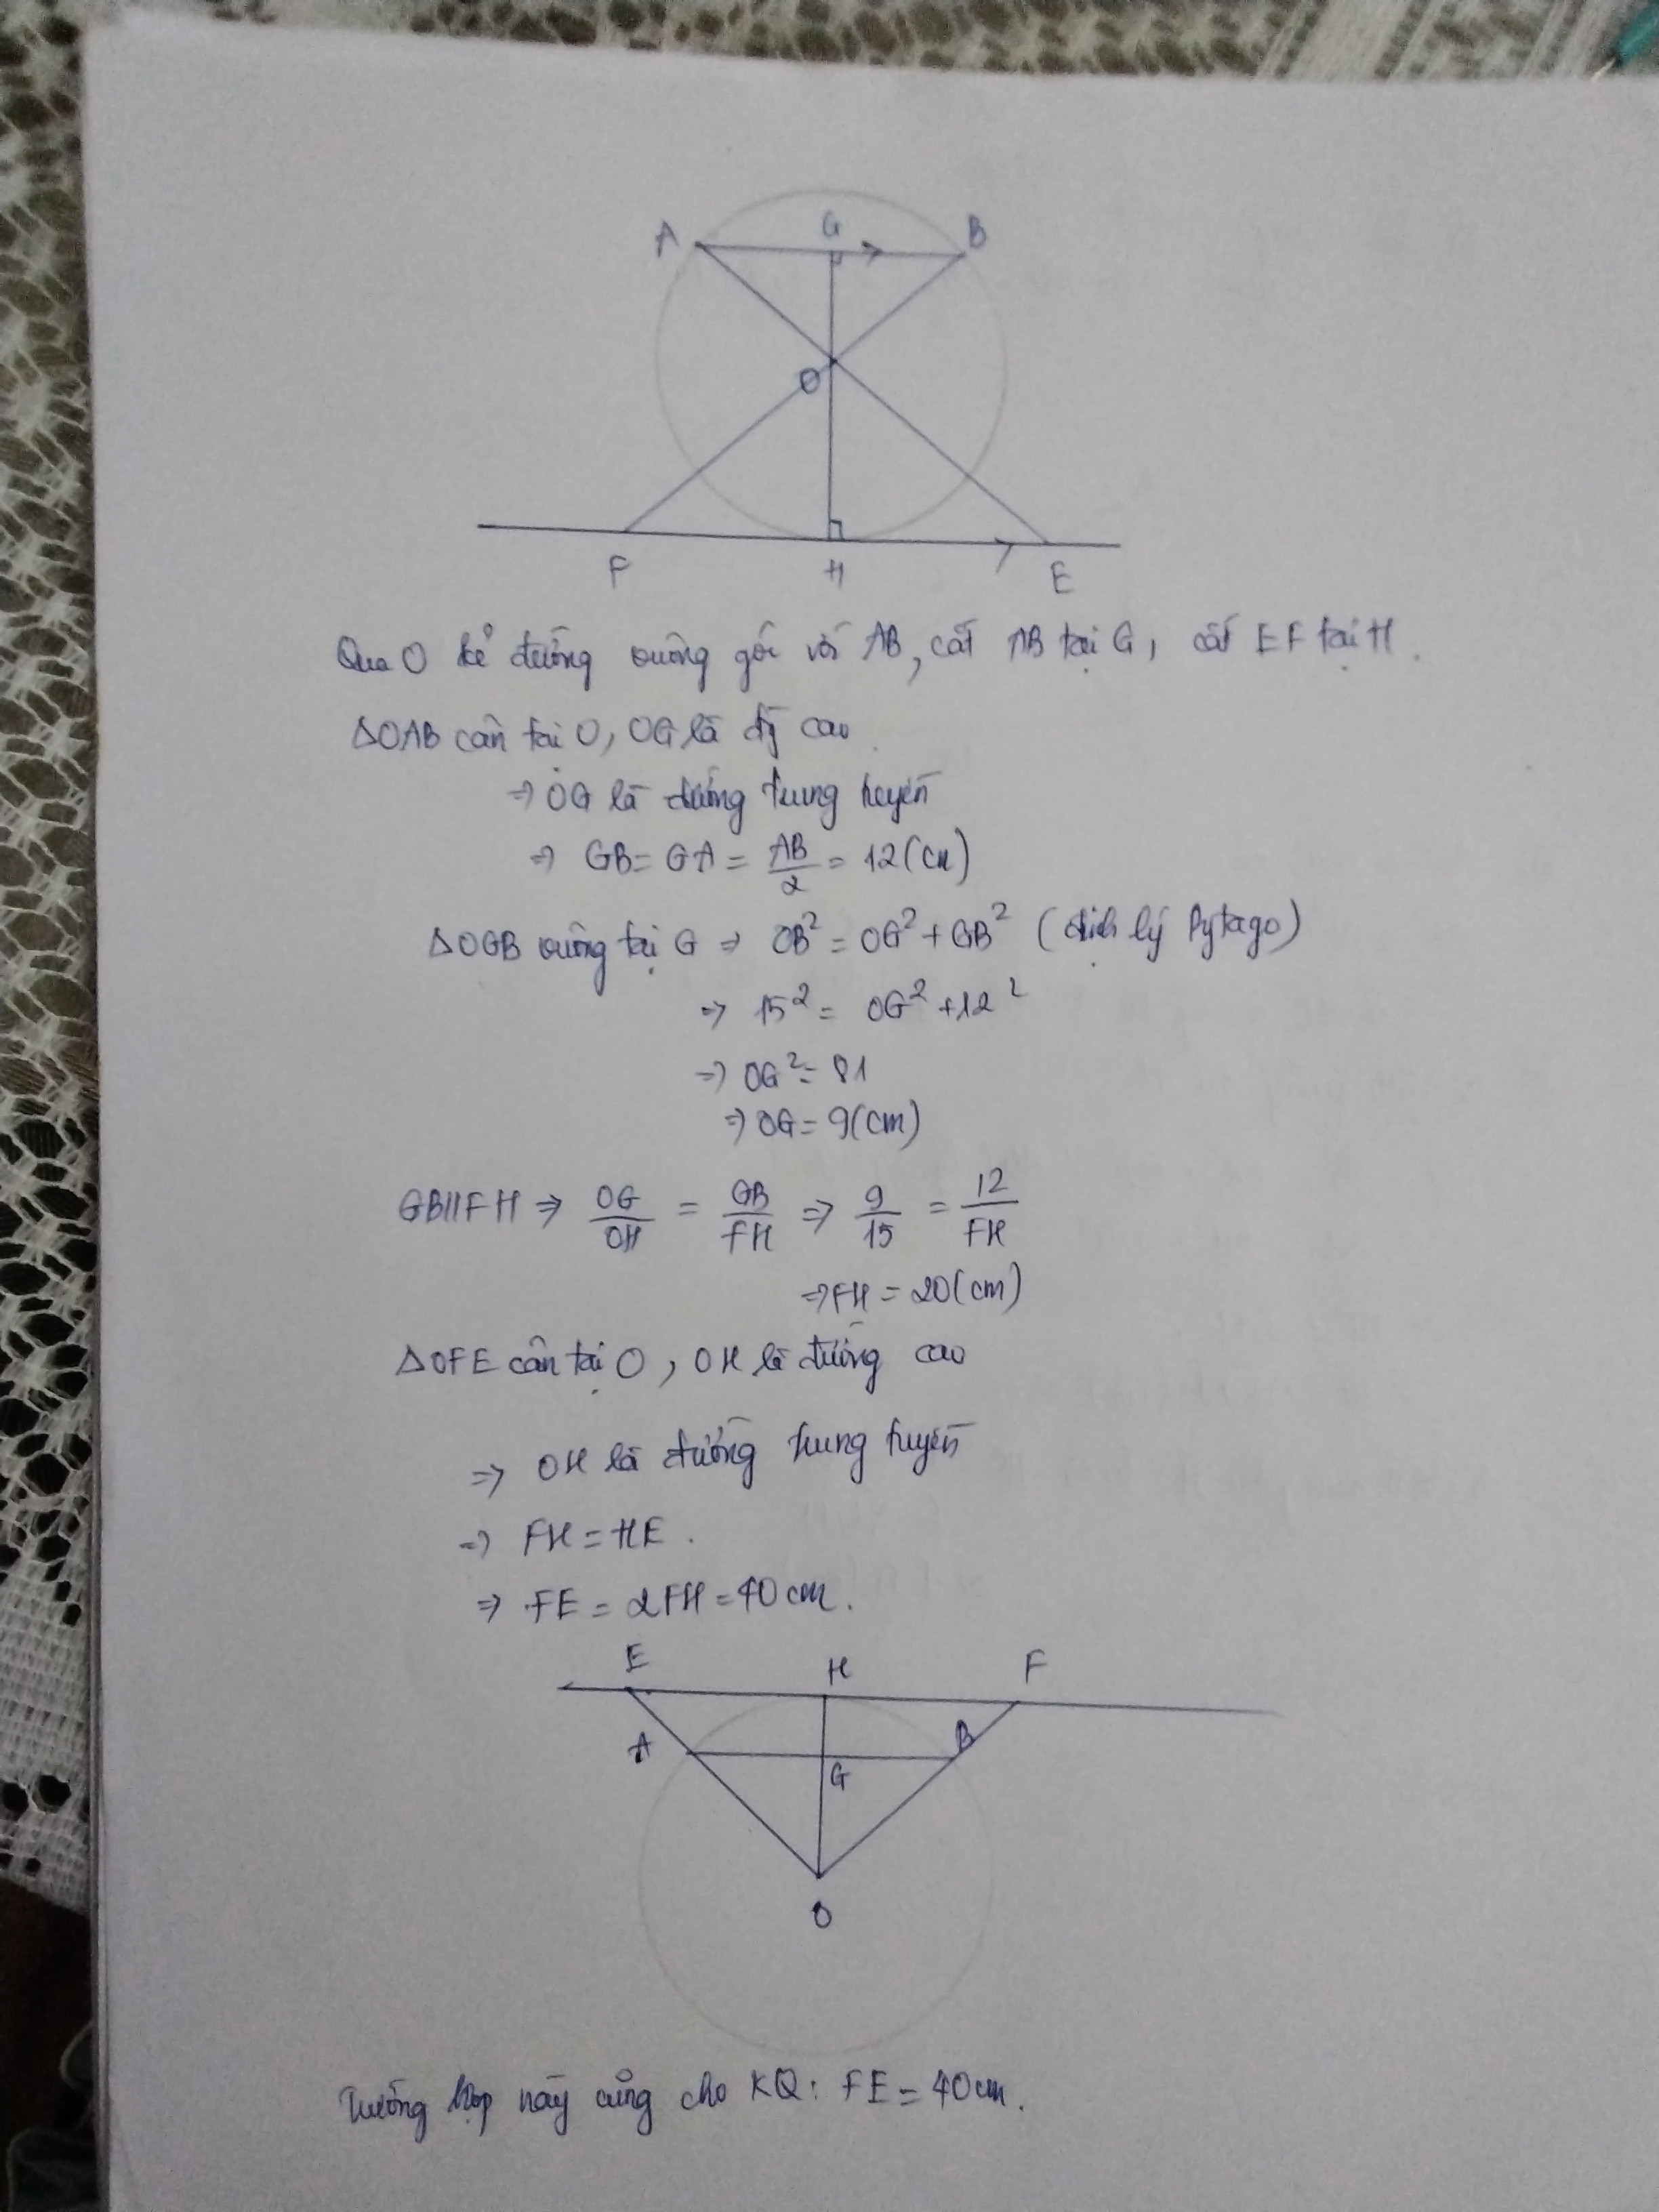 A G B
O
F H E
Qua O kẻ đường vuông góc với AB, cắt AB tại G, cắt EF tại H.
ΔOAB cân tại O, OG là đg cao.
⇒ OG là đường trung tuyến
⇒ GB = GA = AB/2 = 12 (cm)
ΔOGB vuông tại G ⇒ OB² = OG² + GB² (định lý Pytago)
⇒ 15² = OG² + 12²
⇒ OG² = 81
⇒ OG = 9 (cm)
GB//FH ⇒ OG/OH = GB/FH ⇒ 9/15 = 12/FH
⇒ FH = 20 (cm)
ΔOFE cân tại O, OH là đường cao
⇒ OH là đường trung tuyến
⇒ FH = HE.
⇒ FE = 2FH = 40 cm.
E H F
A G B
O
Trường hợp này cũng cho KQ: FE = 40 cm.